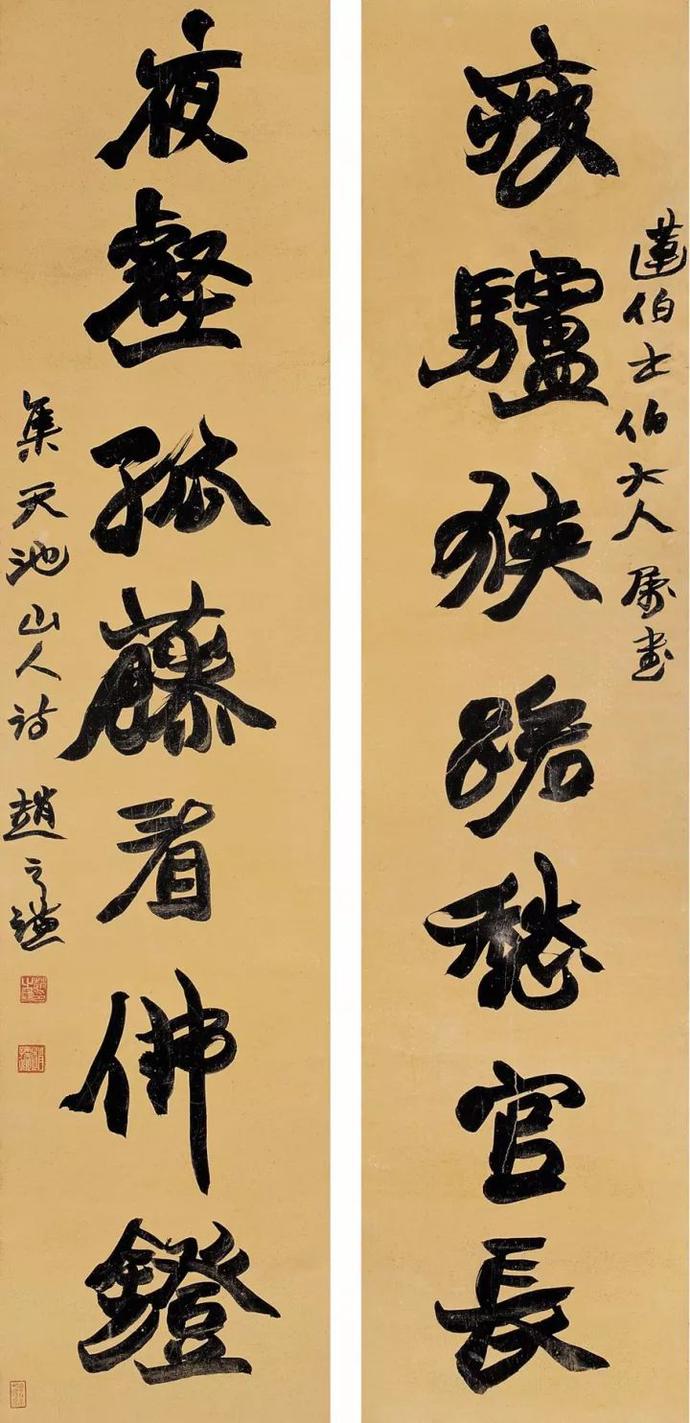 疲驢狹路愁官長
蓮伯士伯大人屬書
夜壑孤藤看佛鐙
集天池山人詩 趙之謙